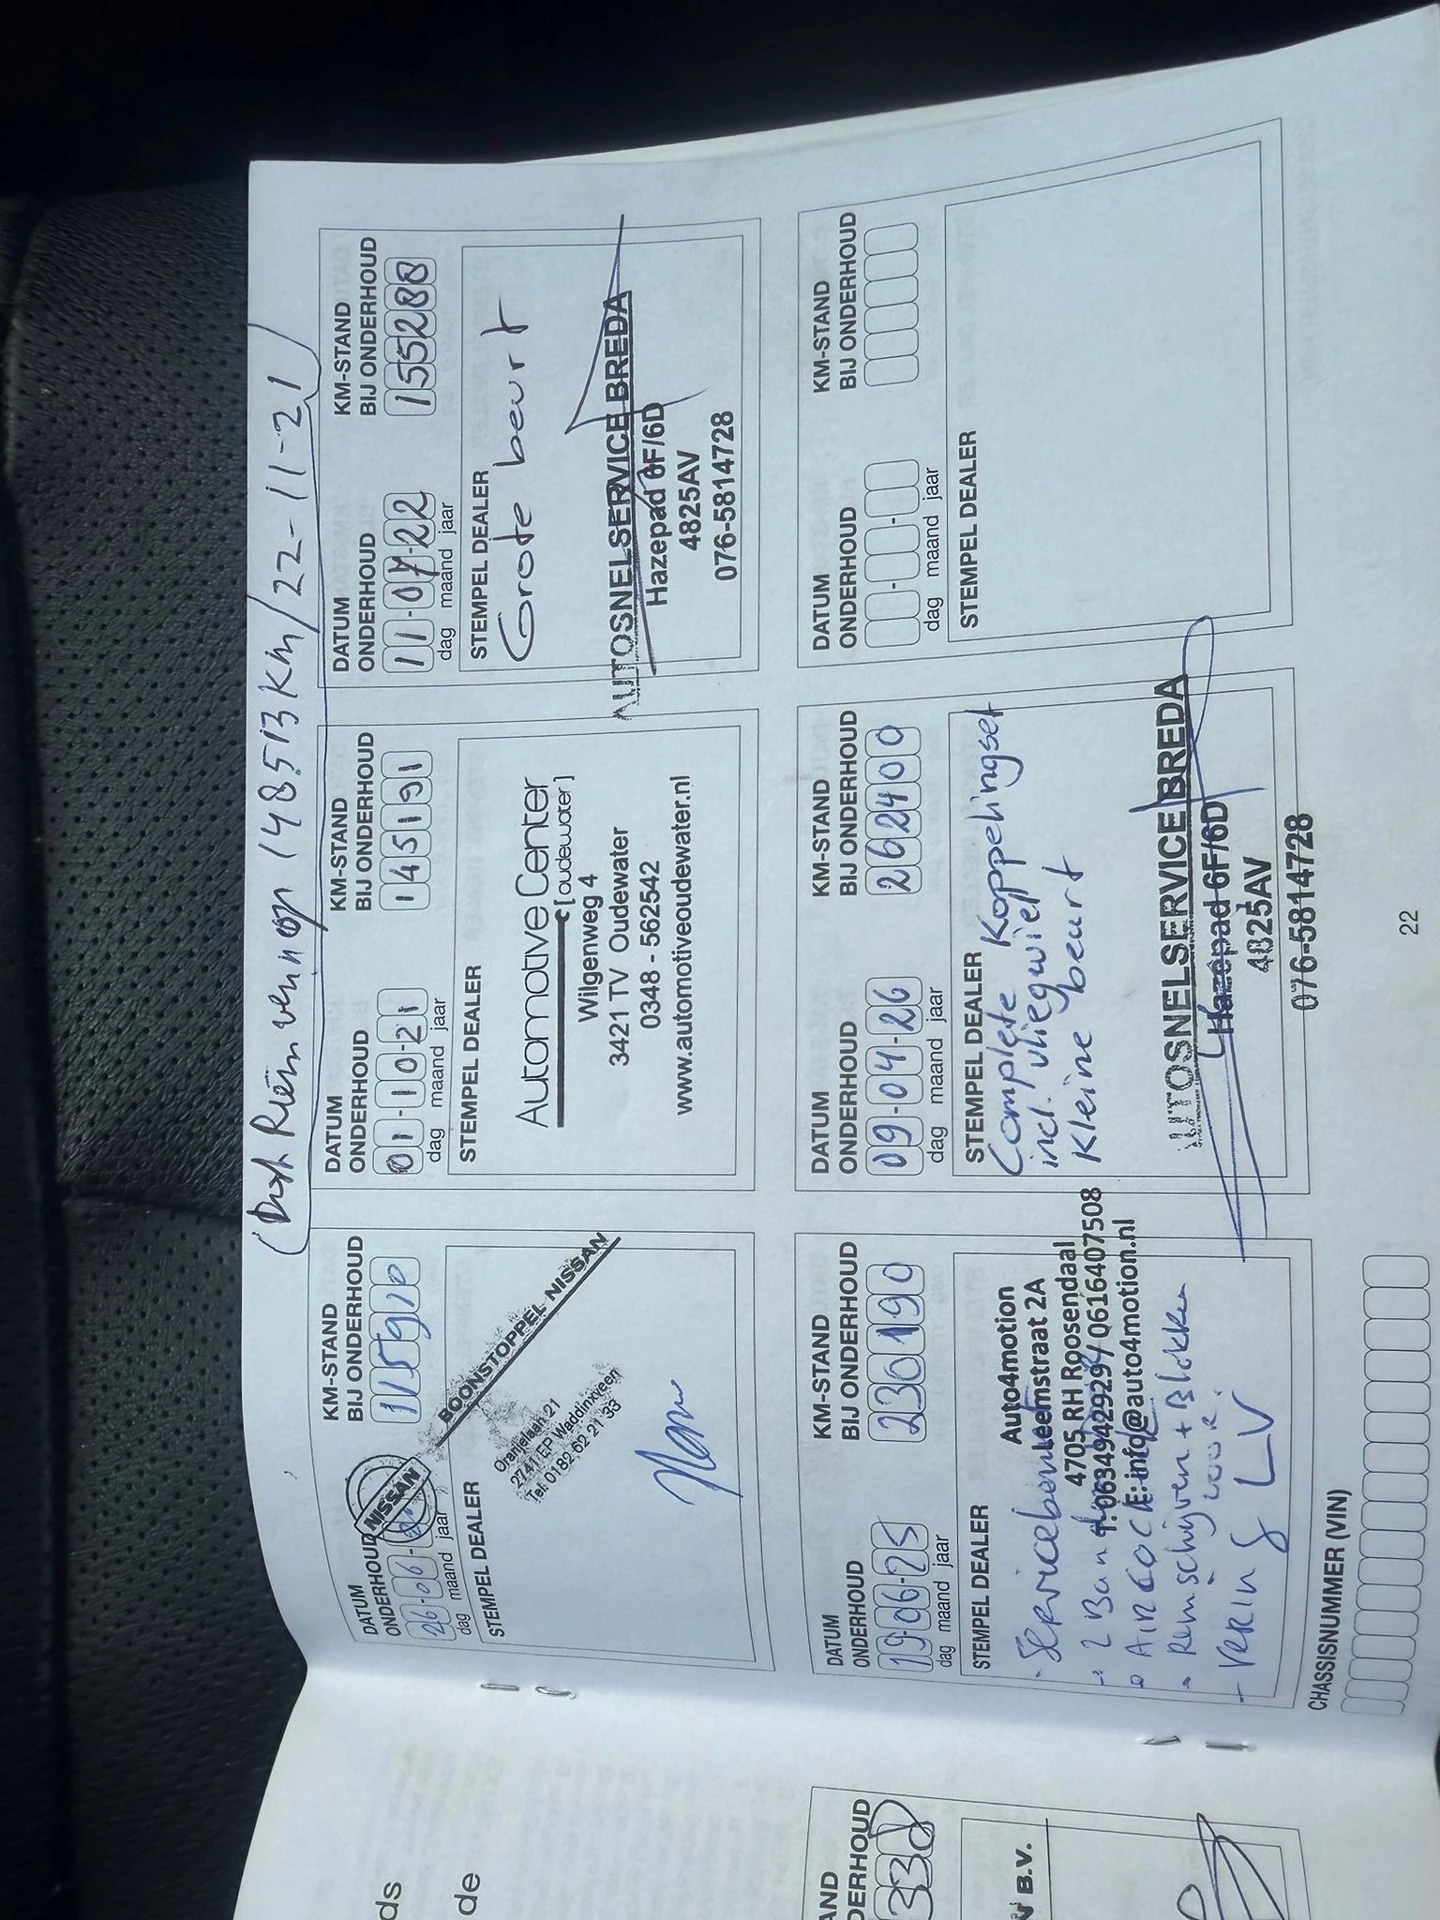 (Dist. Riem vern op 148513 km/22-11-21)
DATUM
ONDERHOUD
KM-STAND
BIJ ONDERHOUD
26-06-
115910
dag maand jaar
STEMPEL DEALER
NISSAN
BOONSTOPPEL NISSAN
Oranjelaan 21
2741 EP Waddinxveen
Tel. 0182 62 21 33
DATUM
ONDERHOUD
KM-STAND
BIJ ONDERHOUD
01-10-21
145191
dag maand jaar
STEMPEL DEALER
Automotive Center
[oudewater]
Wilgenweg 4
3421 TV Oudewater
0348 - 562542
www.automotiveoudewater.nl
DATUM
ONDERHOUD
KM-STAND
BIJ ONDERHOUD
11-07-22
155288
dag maand jaar
STEMPEL DEALER
Grote beurt
AUTOSNELSERVICE BREDA
Hazepad 6F/6D
4825AV
076-5814728
DATUM
ONDERHOUD
KM-STAND
BIJ ONDERHOUD
19-06-25
230190
dag maand jaar
STEMPEL DEALER
Auto4motion
Leemstraat 2A
4705 RH Roosendaal
T: 0634942929 / 0616407508
E: info@auto4motion.nl
- Servicebeurt
- 2 Banden
- Airco
- Remschijven + Blokken
- Vering voor.
LV
DATUM
ONDERHOUD
KM-STAND
BIJ ONDERHOUD
09-04-26
262400
dag maand jaar
STEMPEL DEALER
Complete Koppelingset
incl. vliegwiel
Kleine beurt
AUTOSNELSERVICE BREDA
Hazepad 6F/6D
4825AV
076-5814728
DATUM
ONDERHOUD
KM-STAND
BIJ ONDERHOUD
dag maand jaar
STEMPEL DEALER
CHASSISNUMMER (VIN)
22
ds
de
AND
DERHOUD
330
N B.V.